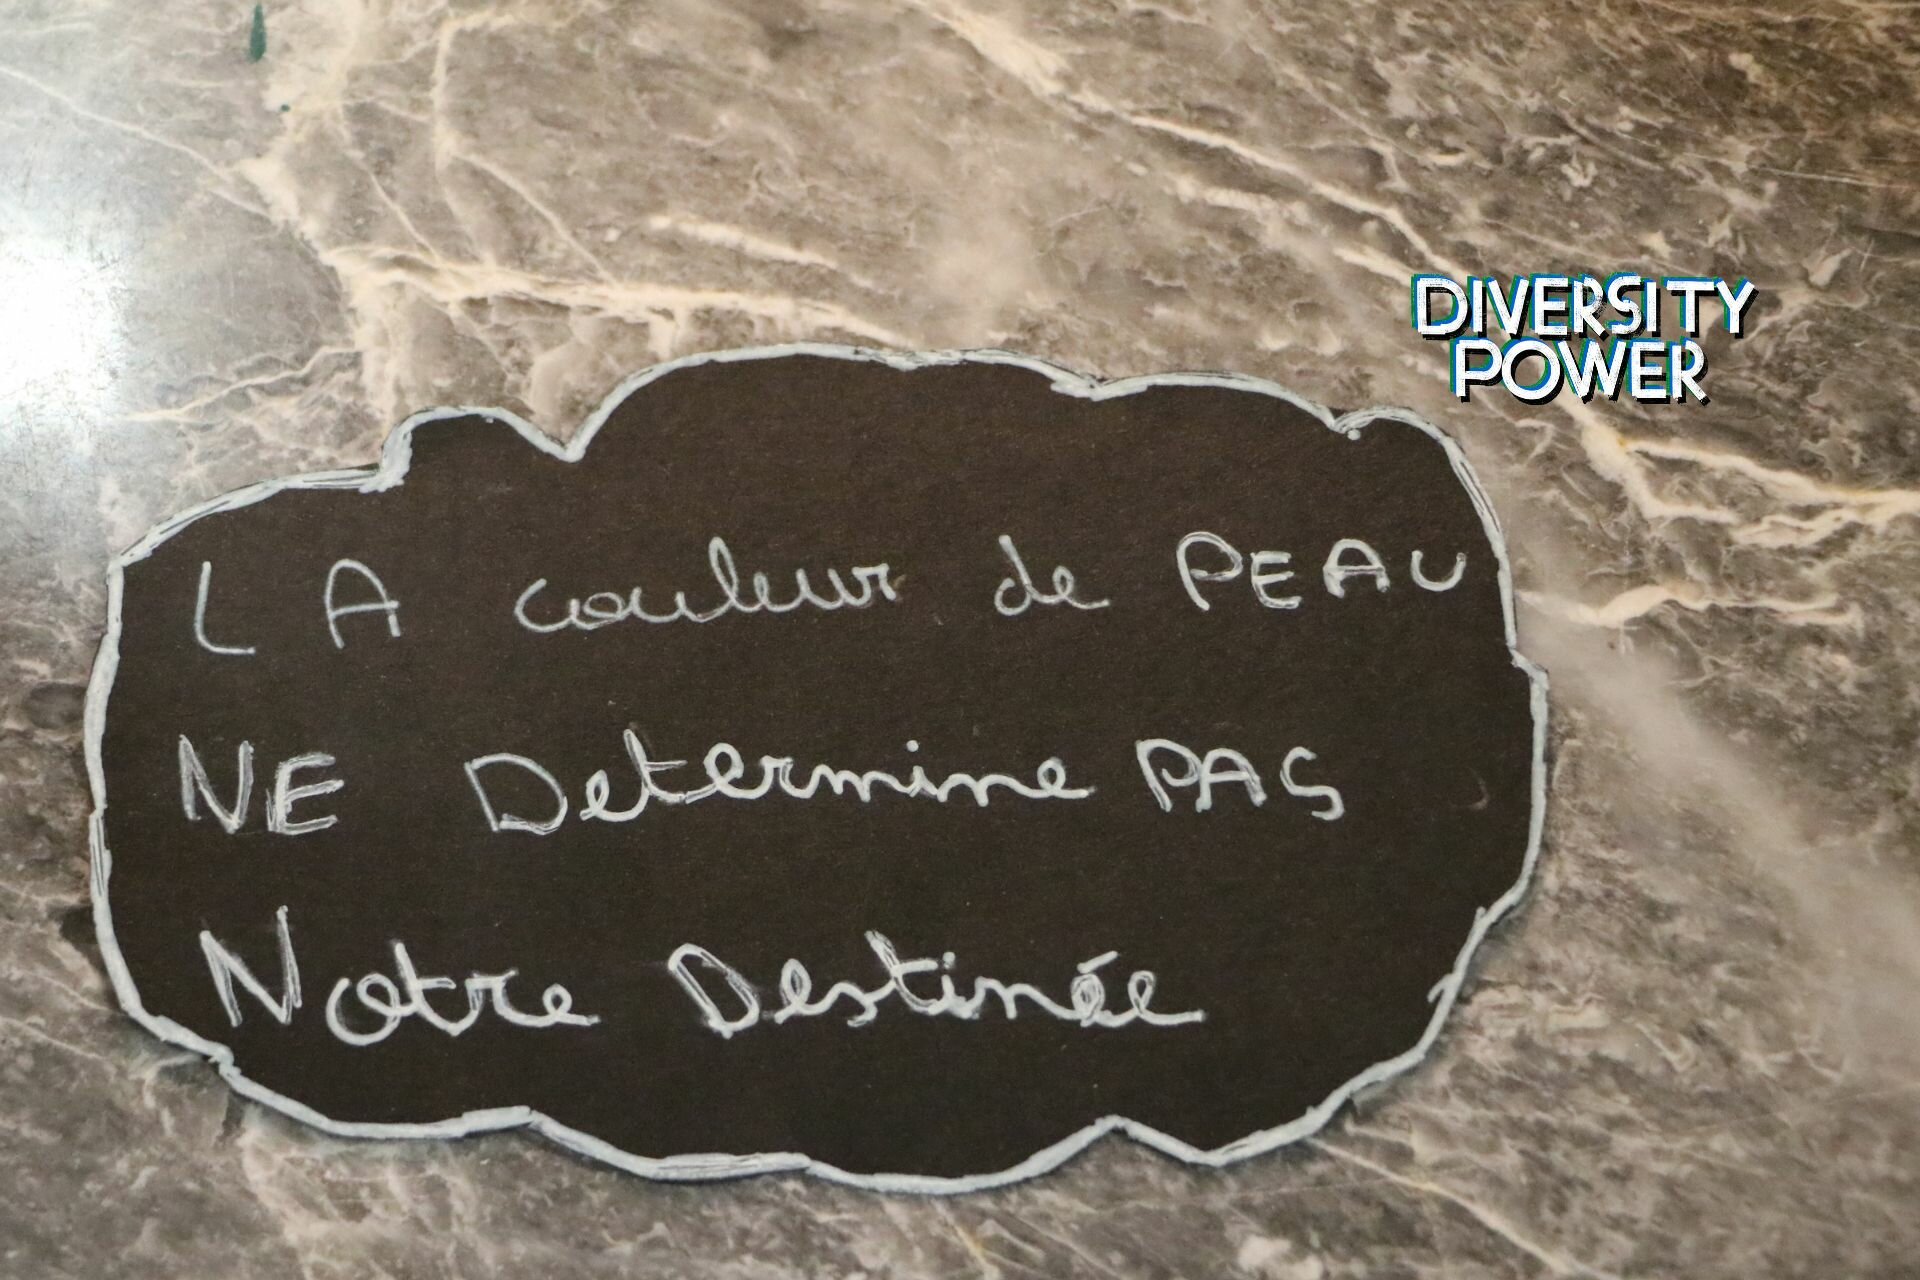 DIVERSITY
POWER
LA couleur de PEAU
NE Determine PAS
Notre Destinée